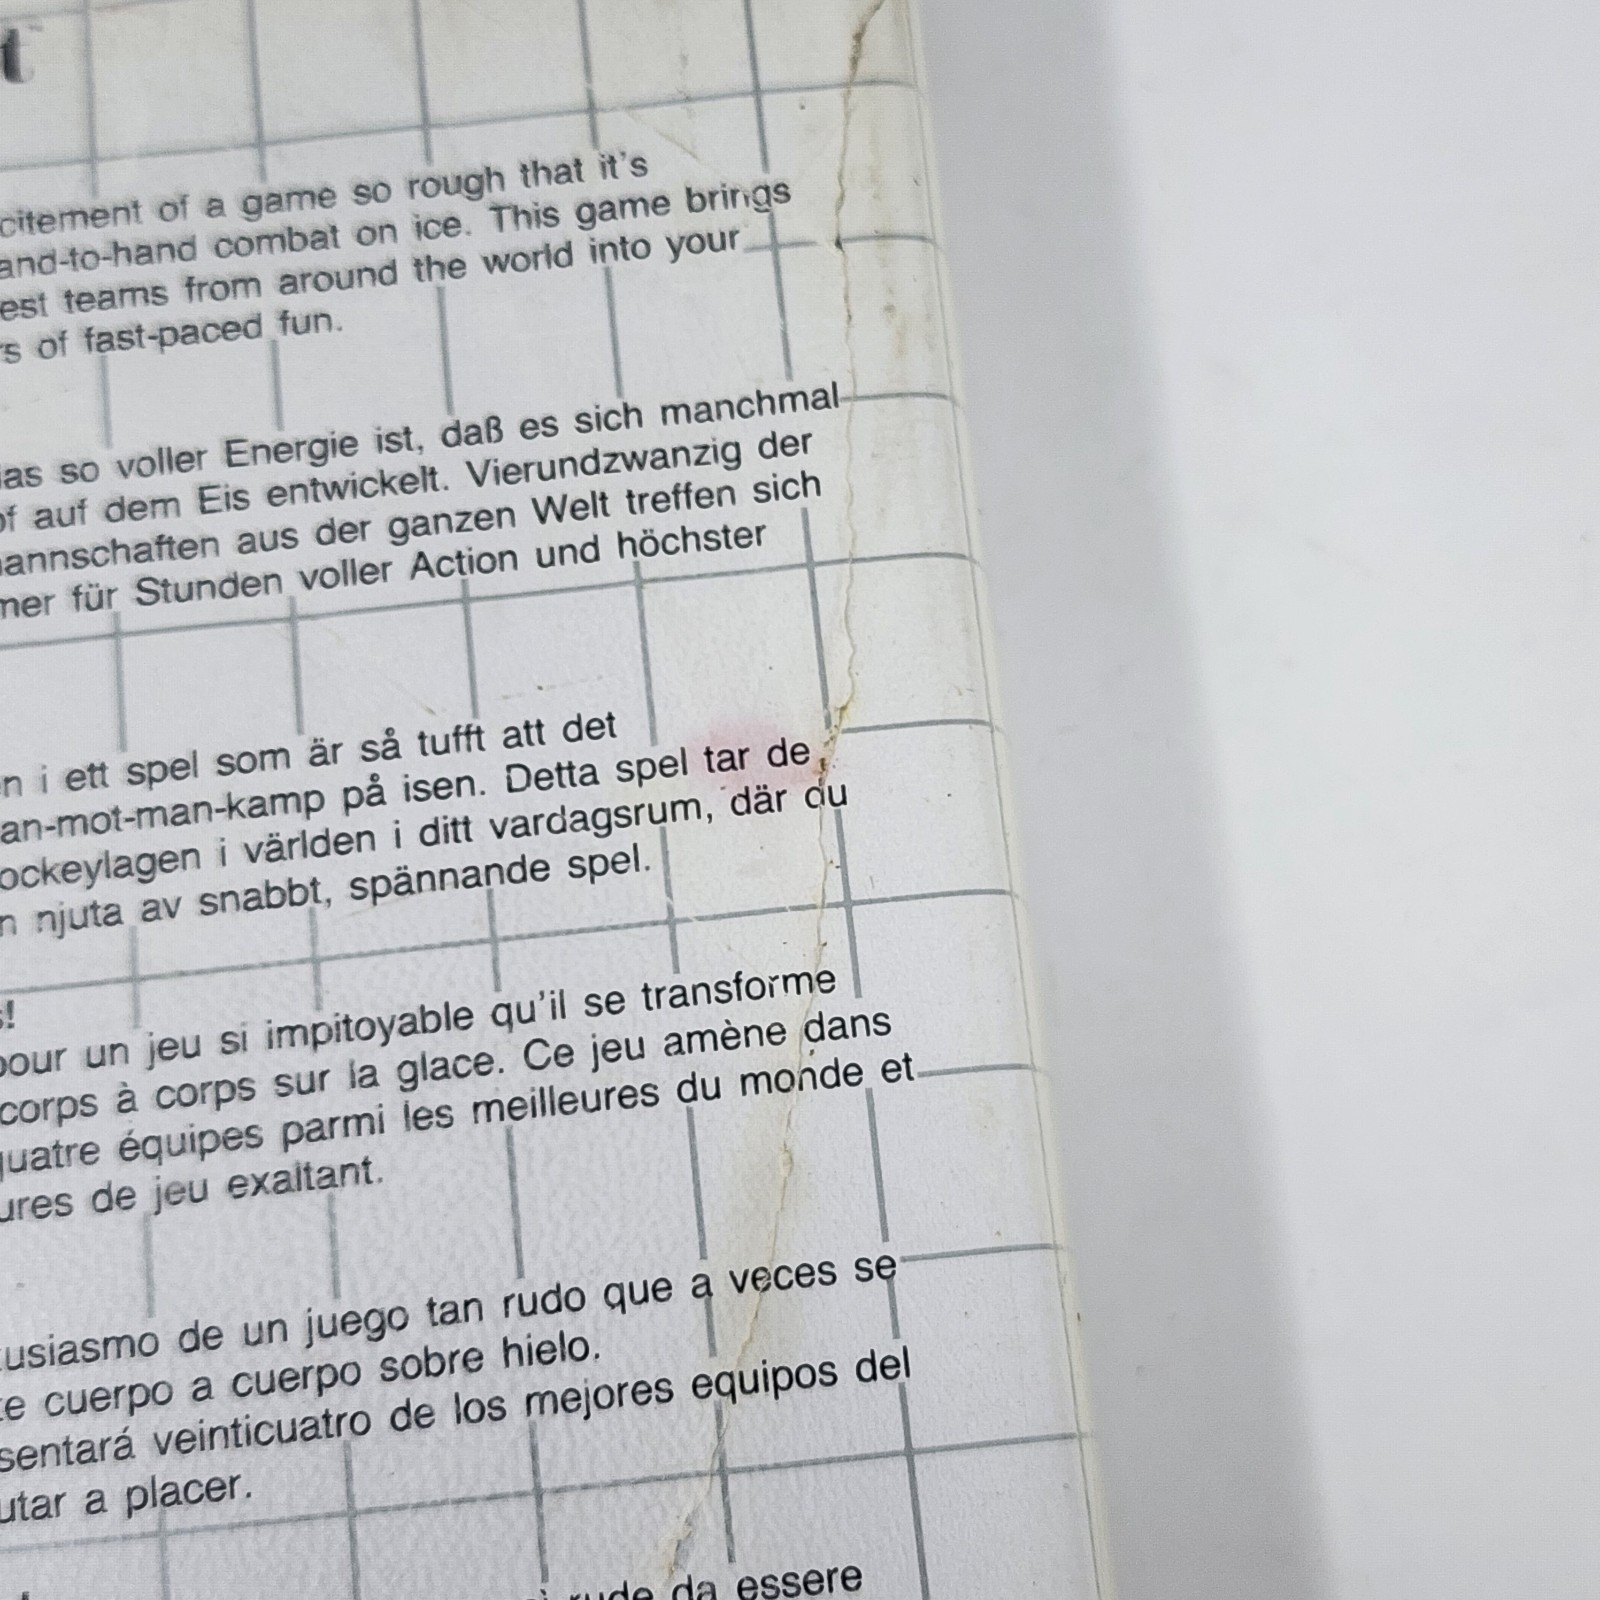 t
citement of a game so rough that it's
and-to-hand combat on ice. This game brings
est teams from around the world into your
rs of fast-paced fun.
las so voller Energie ist, daß es sich manchmal
of auf dem Eis entwickelt. Vierundzwanzig der
annschaften aus der ganzen Welt treffen sich
mer für Stunden voller Action und höchster
n i ett spel som är så tufft att det
an-mot-man-kamp på isen. Detta spel tar de
ockeylagen i världen i ditt vardagsrum, där du
n njuta av snabbt, spännande spel.
s!
pour un jeu si impitoyable qu'il se transforme
corps à corps sur la glace. Ce jeu amène dans
quatre équipes parmi les meilleures du monde et
ures de jeu exaltant.
tusiasmo de un juego tan rudo que a veces se
te cuerpo a cuerpo sobre hielo.
sentará veinticuatro de los mejores equipos del
utar a placer.
rude da essere